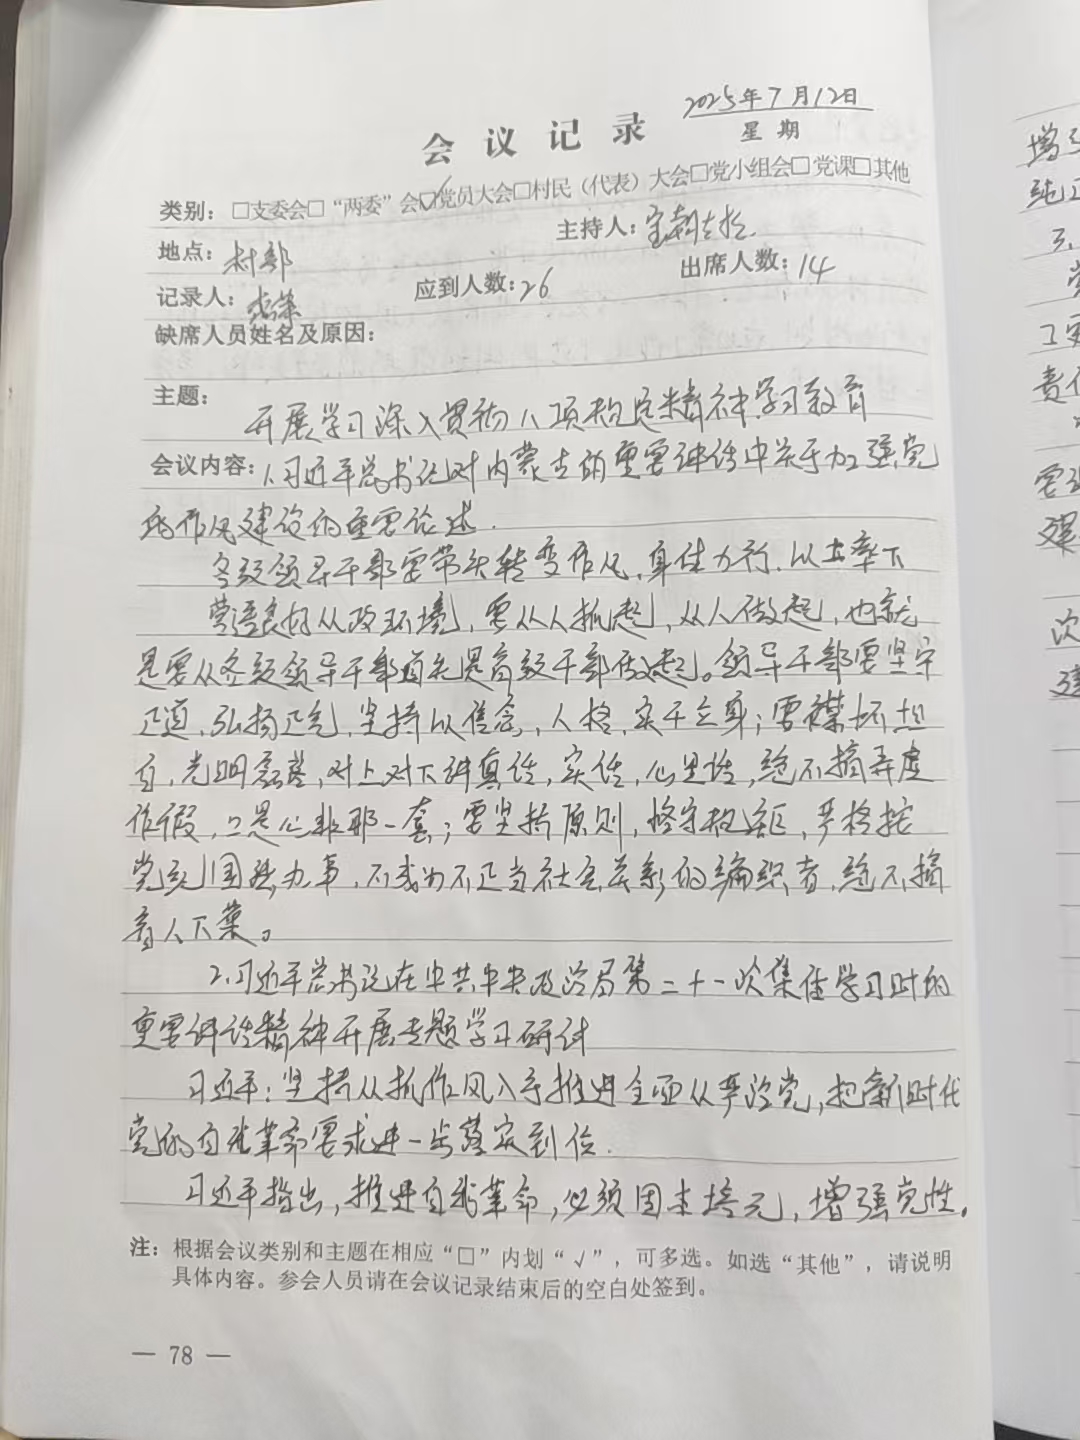 2025年7月12日
会议记录
星期
类别：□支委会□“两委”会☑党员大会□村民（代表）大会□党小组会□党课□其他
地点：村部 主持人：
记录人： 应到人数：26 出席人数：14
缺席人员姓名及原因：
主题：开展学习深入贯彻八项规定精神学习教育
会议内容：1.习近平总书记对内蒙古的重要讲话中关于加强党
的作风建设的重要论述.
各级领导干部要带头转变作风，身体力行，以上率下
营造良好从政环境，要从人抓起，从人做起，也就
是要从各级领导干部首先是高级干部做起。领导干部要坚守
正道，弘扬正气，坚持以信念，人格，实干立身；要襟怀坦
白，光明磊落，对上对下讲真话，实话，心里话，绝不搞弄虚
作假，口是心非那一套；要坚持原则，恪守规矩，严格按
党纪国法办事，不成为不正当社会关系的编织者，绝不搞
2.习近平总书记在中共中央政治局第二十一次集体学习时的
重要讲话精神开展专题学习研讨
习近平：坚持从抓作风入手推进全面从严治党，把新时代
党的自我革命要求进一步落实到位.
习近平指出，推进自我革命，必须固本培元，增强党性。
注：根据会议类别和主题在相应“□”内划“√”，可多选。如选“其他”，请说明
具体内容。参会人员请在会议记录结束后的空白处签到。
— 78 —